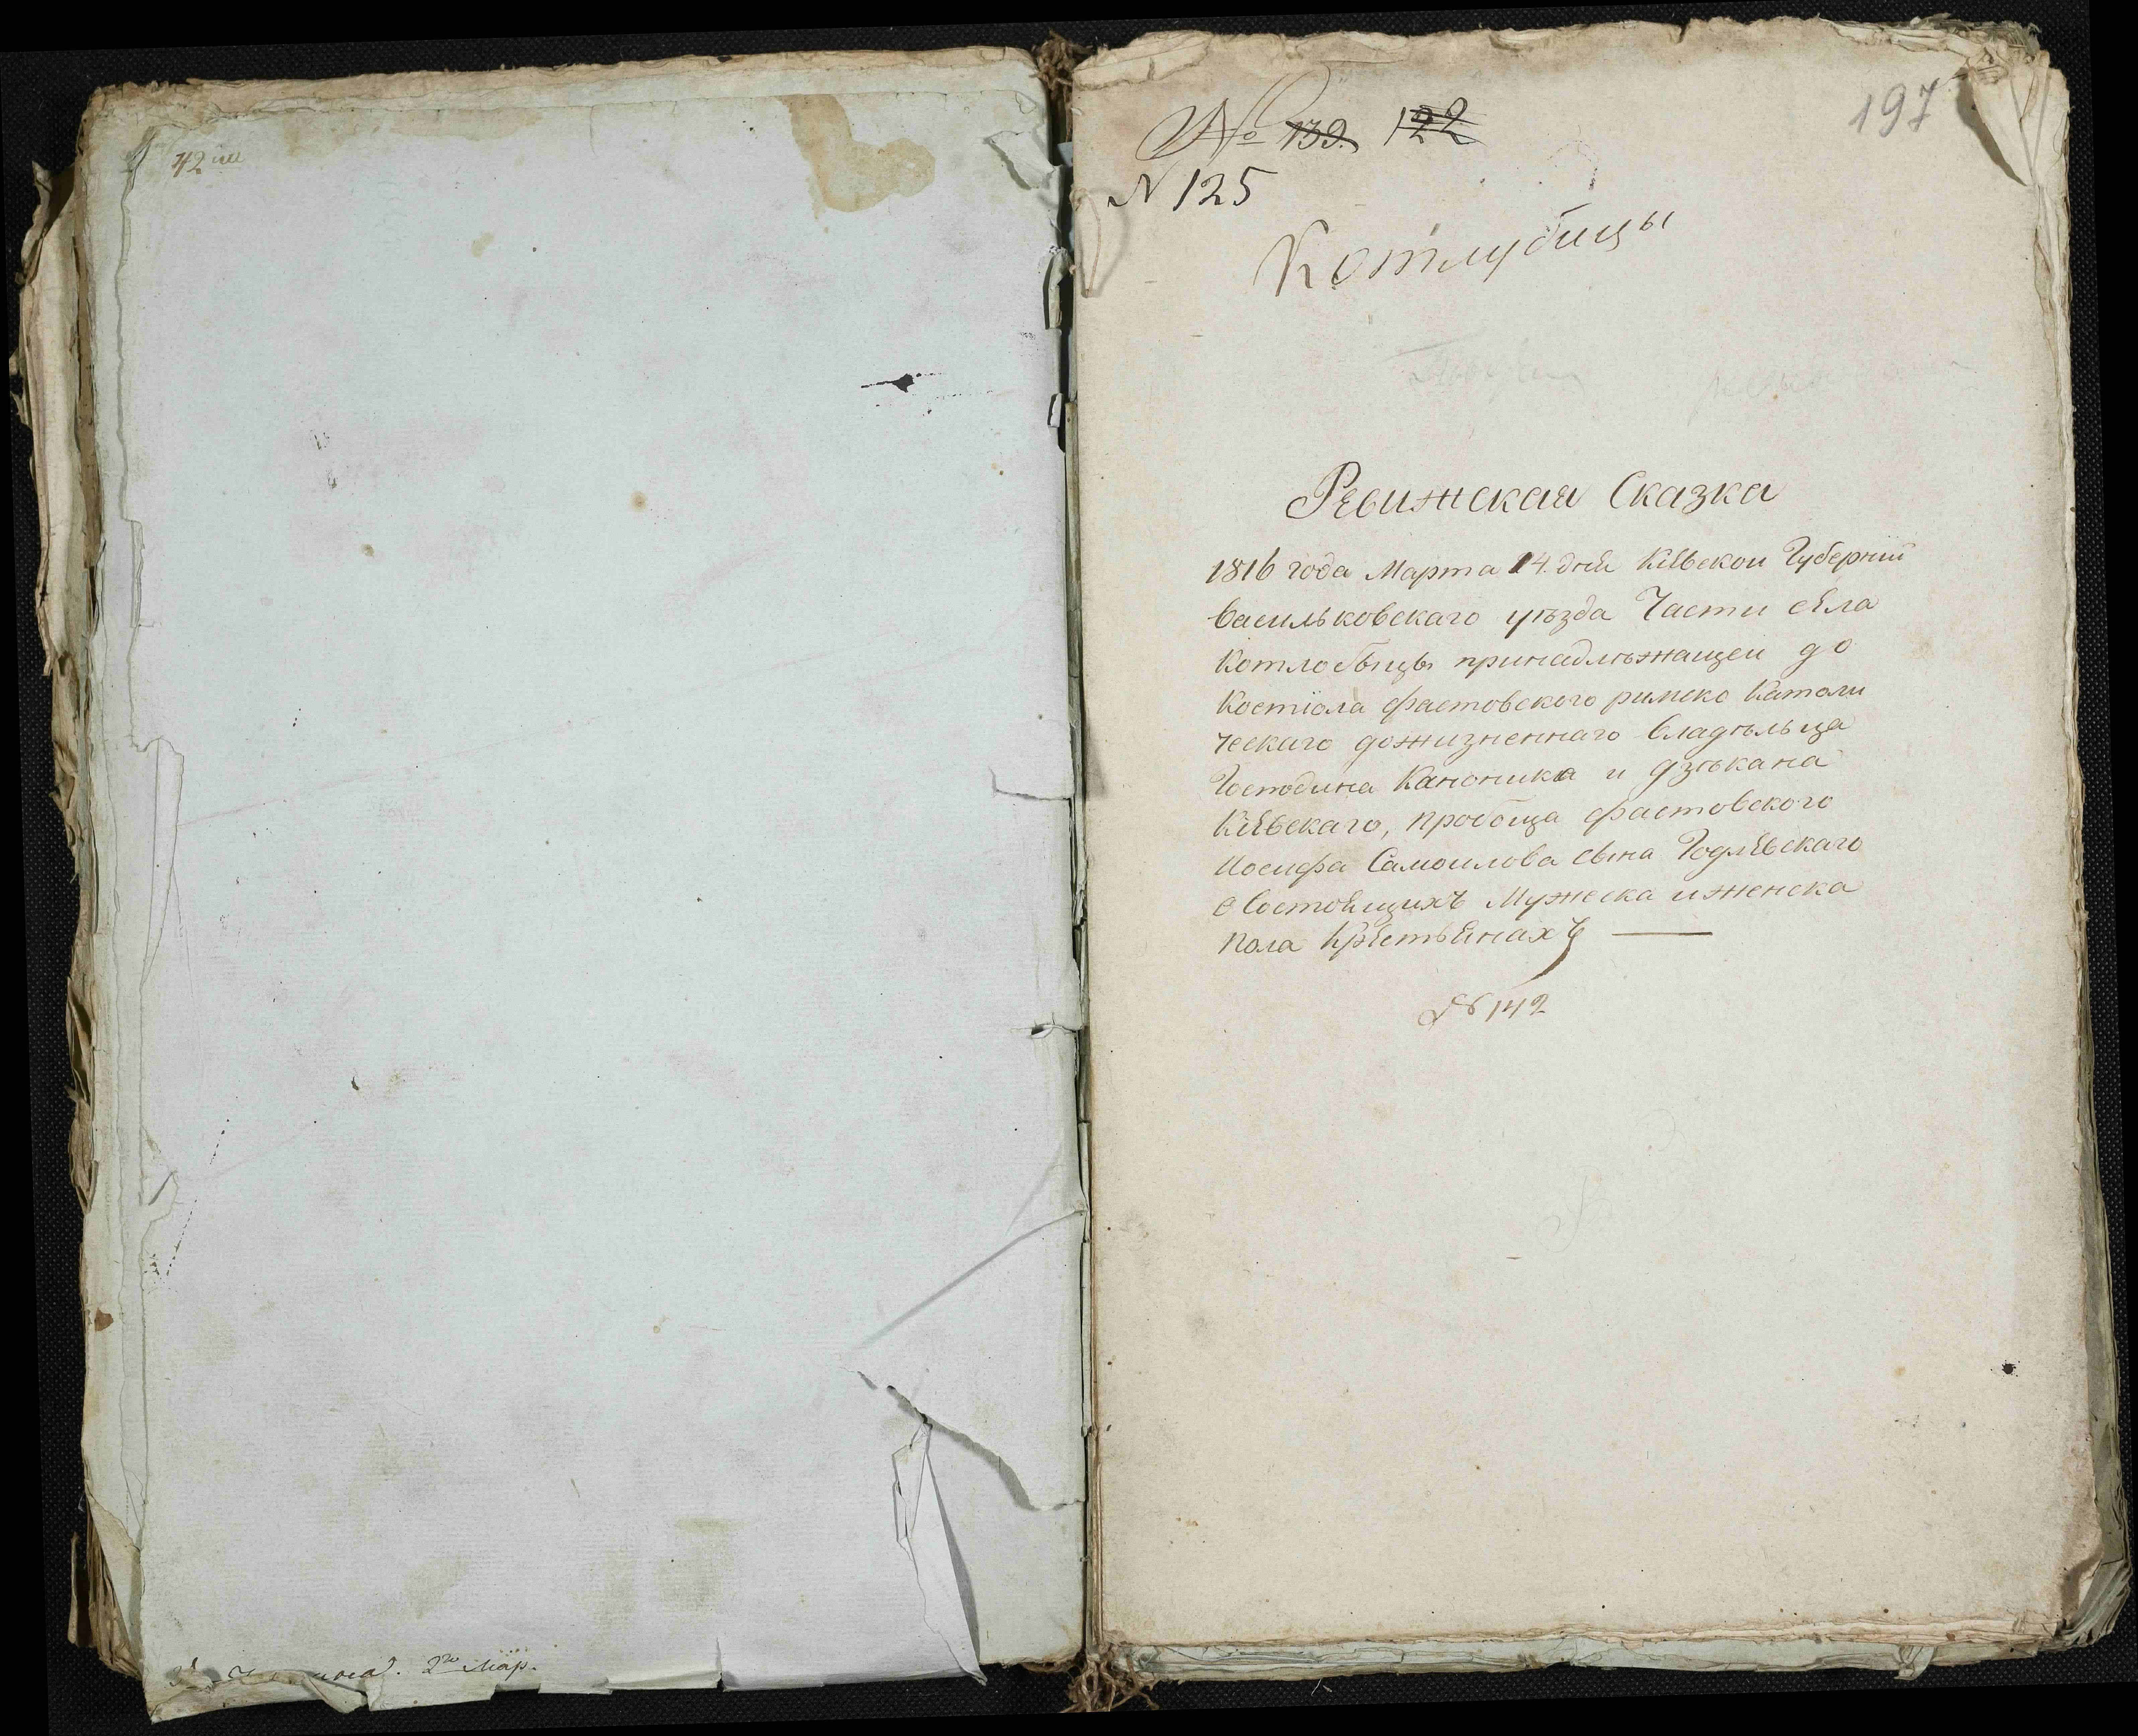 42
2го Мар.
197
№ 139. 122
N 125
Котлубицы
Ревижская Сказка
1816 года Марта 14. дня Кіевской Губерніи
Васильковскаго уѣзда Части села
Котлобыцы принадлѣжащей до
Костіола фастовского римско Католи
ческаго дожизненнаго владѣльца
Господина Каноника и дзѣкана
Кіевскаго, пробоща фастовского
Иосифа Самоилова сына Годлевскаго
о Состоящихъ Мужеска и женска
пола Крестьянахъ —
№ 142